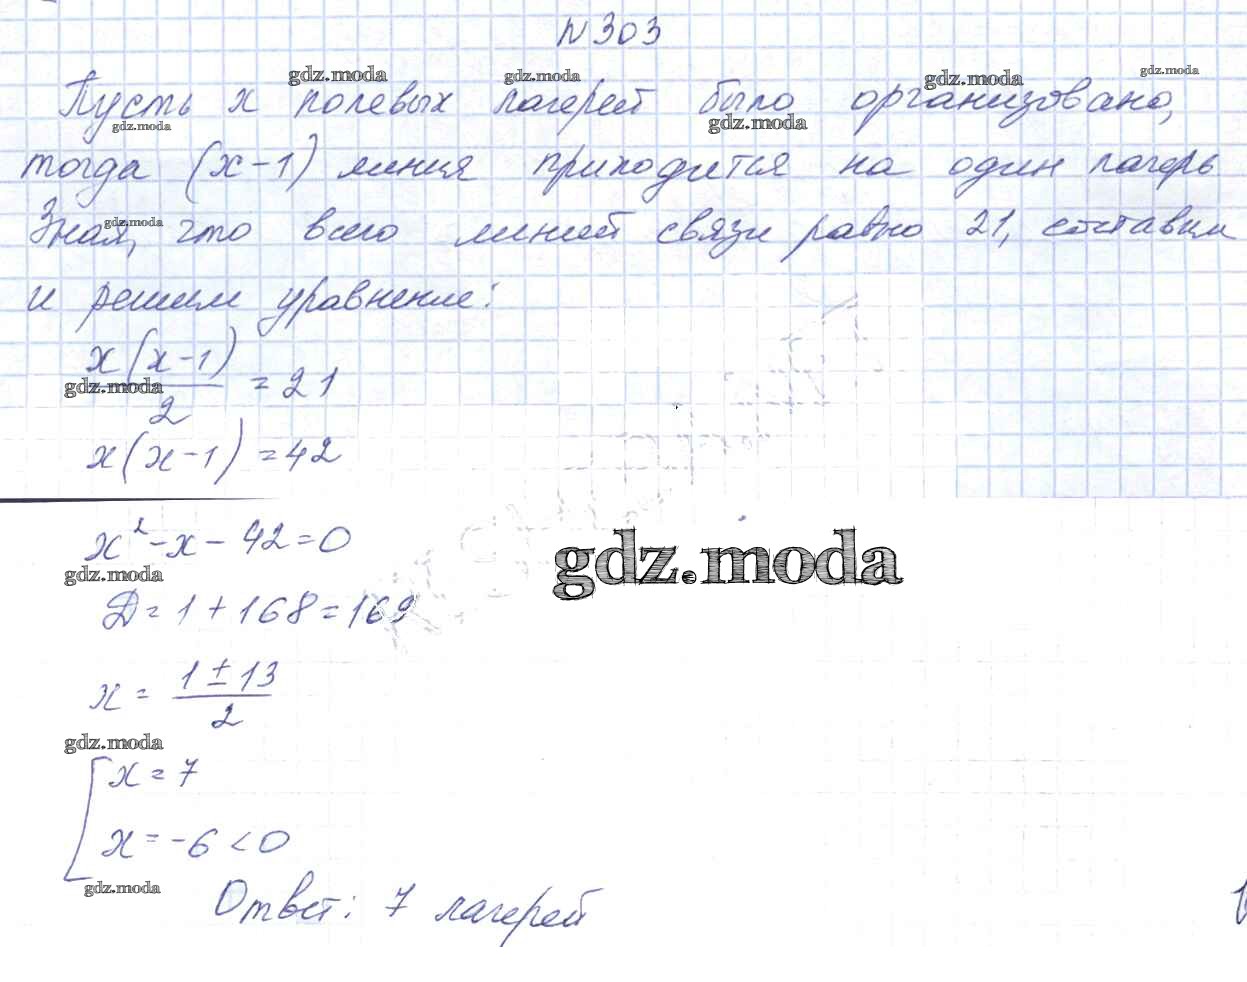 N 303
gdz.moda gdz.moda gdz.moda gdz.moda
Пусть x полевых лагерей было организовано,
gdz.moda gdz.moda
тогда (x-1) линия приходится на один лагерь.
gdz.moda
Зная, что всего линий связи равно 21, составим
и решим уравнение:
x(x-1)/2 = 21
gdz.moda
x(x-1) = 42
x²-x-42=0
gdz.moda
gdz.moda
D=1+168=169
x = (1±13)/2
gdz.moda
[x=7
x=-6<0
gdz.moda
Ответ: 7 лагерей